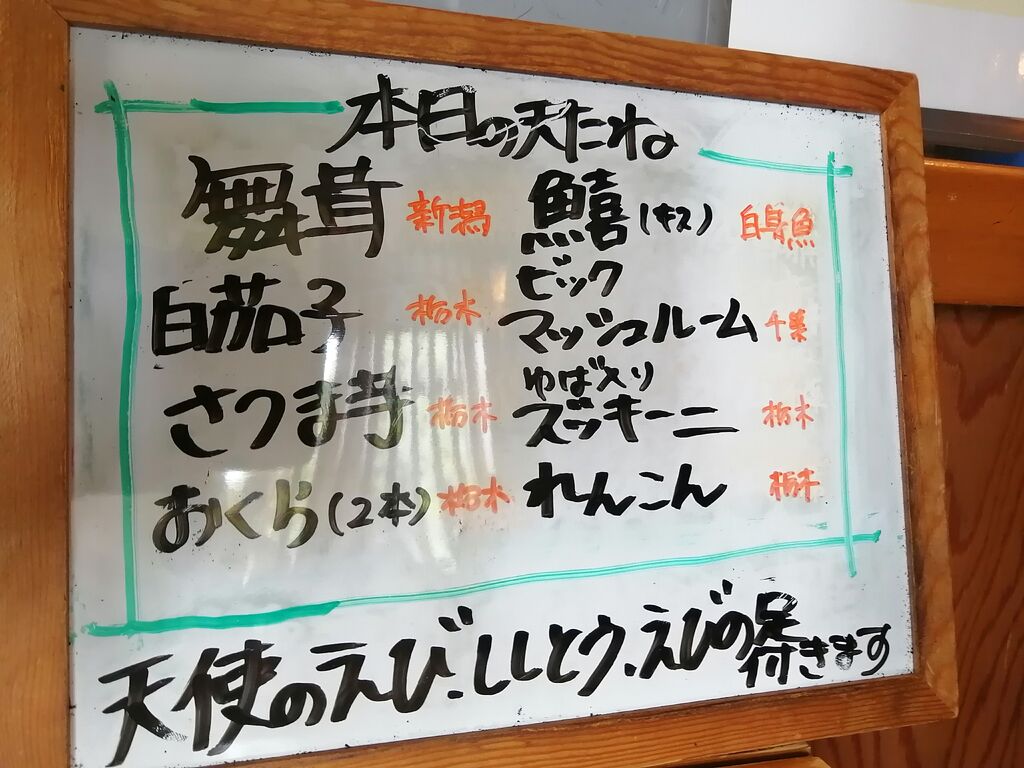 本日の天たね
舞茸 新潟
白茄子 栃木
さつま芋 栃木
おくら(2本) 栃木
鱚(キス) 白身魚
ビック
マッシュルーム 千葉
ゆば入り
ズッキーニ 栃木
れんこん 栃木
天使のえび、ししとう、えびの足
付きます